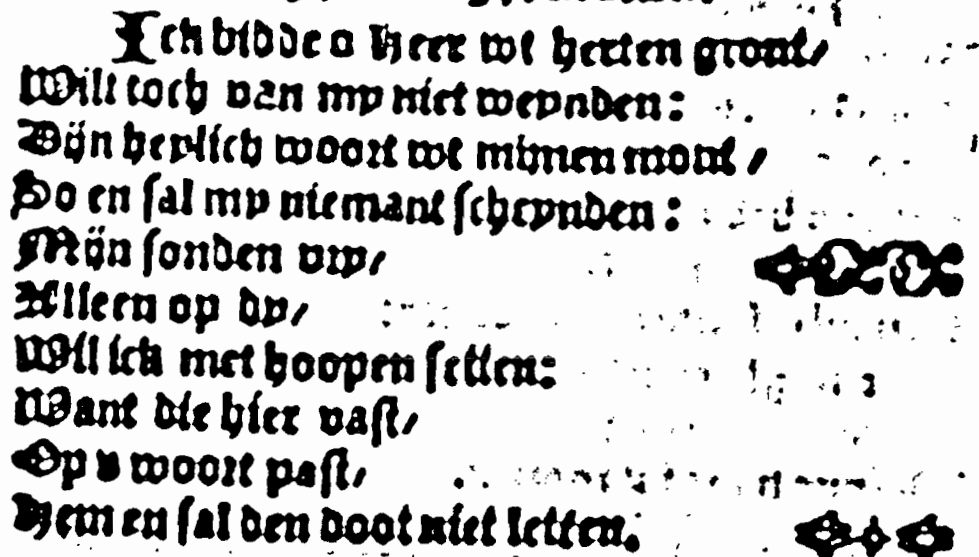 Ick bidde o Heer wt herten gront/
Will toch van my niet weynden:
Dijn heylich woort wt mijnen mont/
So en sal my niemant scheynden:
Mijn sonden vry/
Alleen op dy/
Will ick met hoopen setten:
Want die hier vast/
Op u woort past/
Hem en sal den doot niet letten.